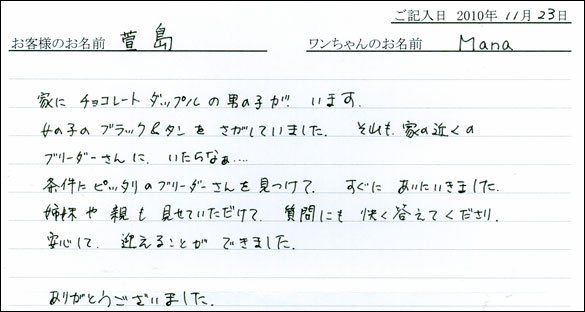 ご記入日 2010年 11月 23日
お客様のお名前 萱島 ワンちゃんのお名前 Mana
家に チョコレート ダップル の 男の子が います.
女の子の ブラック&タン を さがしていました. それも 家の近くの
ブリーダーさんに. いたらなぁ....
条件に ピッタリの ブリーダーさんを 見つけて. すぐに あいにいきました.
姉妹 や 親 も 見せていただけて. 質問にも 快く 答えてくださり.
安心して. 迎えることが できました.
ありがとうございました.